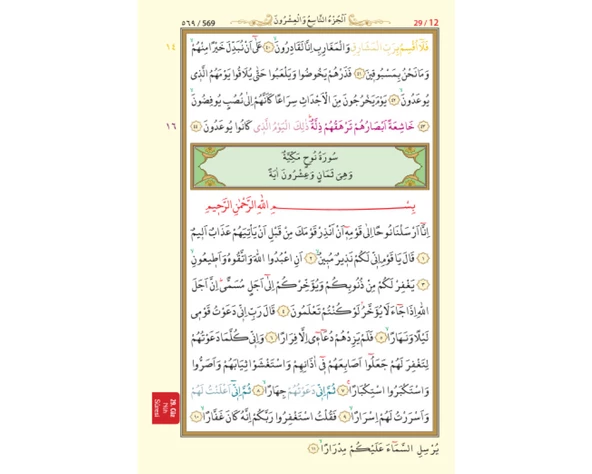 ٥٦٩ / 569 اَلْجُزْءُ التَّاسِعُ وَالْعِشْرُونَ 29 / 12
١٤ فَلَٓا اُقْسِمُ بِرَبِّ الْمَشَارِقِ وَالْمَغَارِبِ اِنَّا لَقَادِرُونَۙ ﴿٤٠﴾ عَلٰٓى اَنْ نُبَدِّلَ خَيْرًا مِنْهُمْۙ
وَمَا نَحْنُ بِمَسْبُوقٖينَ ﴿٤١﴾ فَذَرْهُمْ يَخُوضُوا وَيَلْعَبُوا حَتّٰى يُلَاقُوا يَوْمَهُمُ الَّذٖى
يُوعَدُونَۙ ﴿٤٢﴾ يَوْمَ يَخْرُجُونَ مِنَ الْاَجْدَاثِ سِرَاعًا كَاَنَّهُمْ اِلٰى نُصُبٍ يُوفِضُونَۙ
١٦ ﴿٤٣﴾ خَاشِعَةً اَبْصَارُهُمْ تَرْهَقُهُمْ ذِلَّةٌۜ ذٰلِكَ الْيَوْمُ الَّذٖى كَانُوا يُوعَدُونَ ﴿٤٤﴾
سُورَةُ نُوحٍ مَكِّيَّةٌ
وَهِىَ ثَمَانٍ وَعِشْرُونَ اٰيَةً
بِسْمِ اللّٰهِ الرَّحْمٰنِ الرَّحٖيمِ
اِنَّٓا اَرْسَلْنَا نُوحًا اِلٰى قَوْمِهٖٓ اَنْ اَنْذِرْ قَوْمَكَ مِنْ قَبْلِ اَنْ يَاْتِيَهُمْ عَذَابٌ اَلٖيمٌ
﴿١﴾ قَالَ يَا قَوْمِ اِنّٖى لَكُمْ نَذٖيرٌ مُبٖينٌۙ ﴿٢﴾ اَنِ اعْبُدُوا اللّٰهَ وَاتَّقُوهُ وَاَطٖيعُونِۙ
﴿٣﴾ يَغْفِرْ لَكُمْ مِنْ ذُنُوبِكُمْ وَيُؤَخِّرْكُمْ اِلٰٓى اَجَلٍ مُسَمًّىۜ اِنَّ اَجَلَ
اللّٰهِ اِذَا جَٓاءَ لَا يُؤَخَّرُۢ لَوْ كُنْتُمْ تَعْلَمُونَ ﴿٤﴾ قَالَ رَبِّ اِنّٖى دَعَوْتُ قَوْمٖى
لَيْلًا وَنَهَارًاۙ ﴿٥﴾ فَلَمْ يَزِدْهُمْ دُعَٓاءٖٓى اِلَّا فِرَارًا ﴿٦﴾ وَاِنّٖى كُلَّمَا دَعَوْتُهُمْ
لِتَغْفِرَ لَهُمْ جَعَلُٓوا اَصَابِعَهُمْ فٖٓى اٰذَانِهِمْ وَاسْتَغْشَوْا ثِيَابَهُمْ وَاَصَرُّوا
وَاسْتَكْبَرُوا اسْتِكْبَارًاۚ ﴿٧﴾ ثُمَّ اِنّٖى دَعَوْتُهُمْ جِهَارًاۙ ﴿٨﴾ ثُمَّ اِنّٖٓى اَعْلَنْتُ لَهُمْ
وَاَسْرَرْتُ لَهُمْ اِسْرَارًاۙ ﴿٩﴾ فَقُلْتُ اسْتَغْفِرُوا رَبَّكُمْ اِنَّهُ كَانَ غَفَّارًاۙ ﴿١٠﴾
يُرْسِلِ السَّمَٓاءَ عَلَيْكُمْ مِدْرَارًاۙ ﴿١١﴾
29. Cüz
Nûh
Sûresi